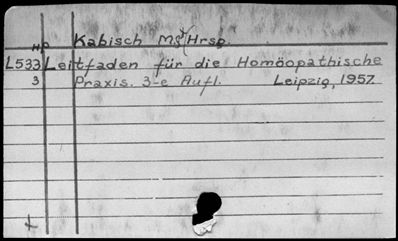 Kabisch Mg Hrsg.
Ho
L533 Leitfaden für die Homöopathische
3 Praxis. 3-e Aufl. Leipzig, 1957.